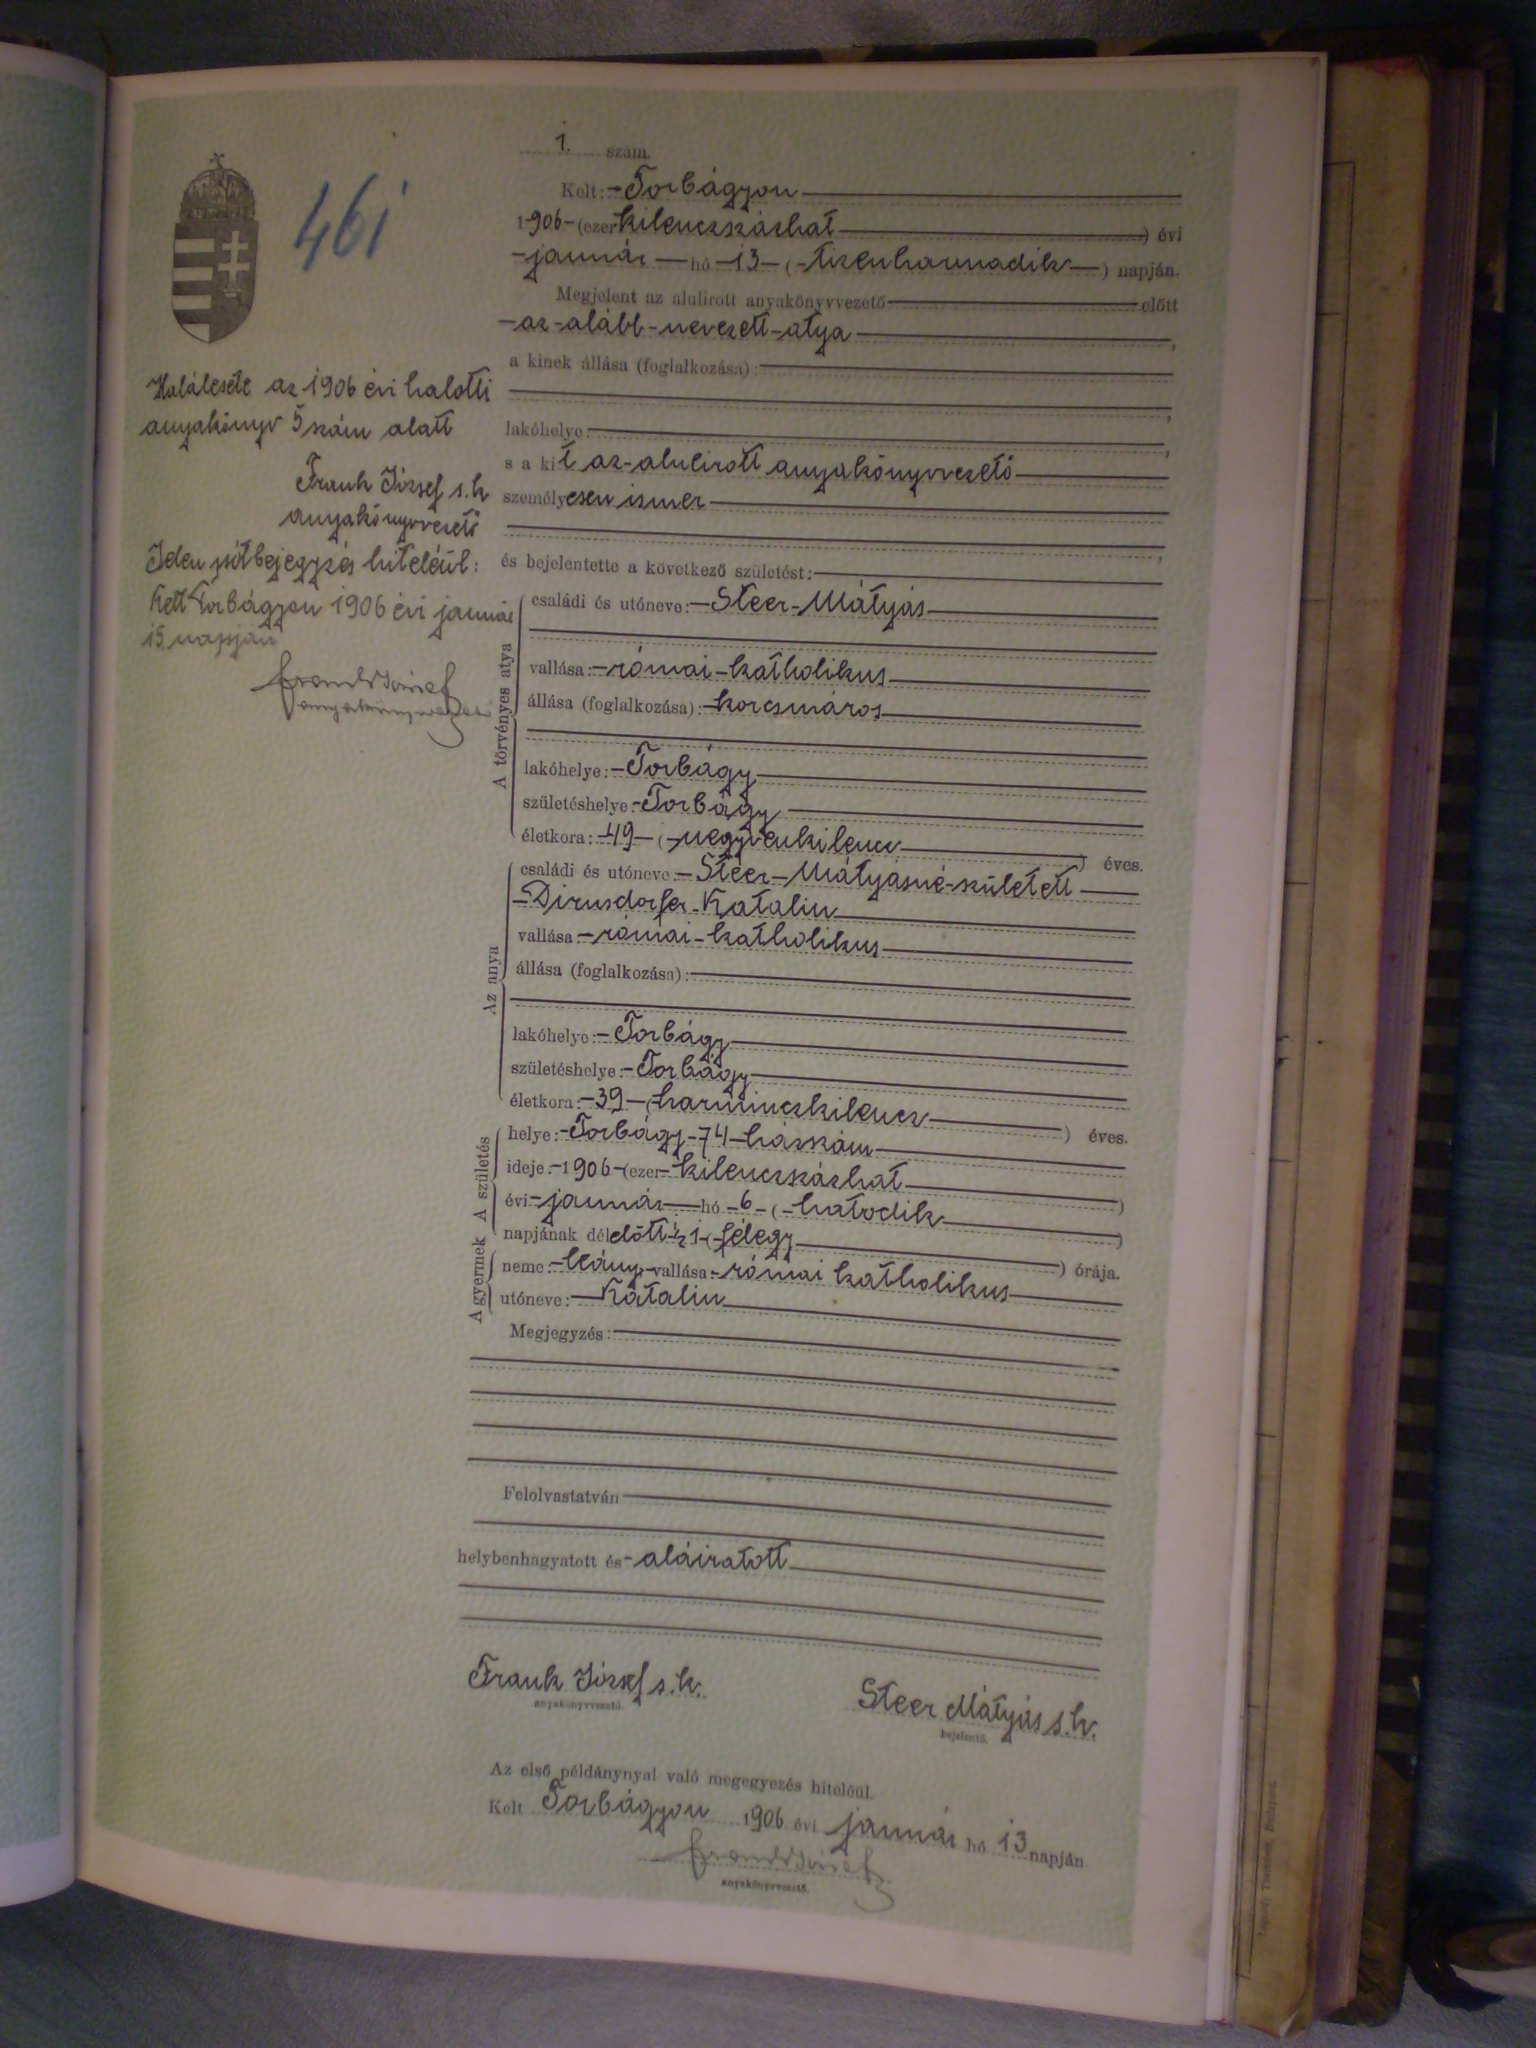 1. szám.
461
Kelt: Torbágyon
1906 (ezer kilenczszázhat) évi
január hó 13 (tizenharmadik) napján.
Megjelent az alulirott anyakönyvvezető előtt
az alább nevezett atya,
a kinek állása (foglalkozása):
lakóhelye:
s a kit az alulirott anyakönyvvezető
személyesen ismer
és bejelentette a következő születést:
Halálesete az 1906 évi halotti
anyakönyv 5 szám alatt
Frank József s.k
anyakönyvvezető
Jelen utóbejegyzés hiteléül:
Kelt Torbágyon 1906 évi január
15. napján
Frank József
anyakönyvvezető
A törvényes atya
családi és utóneve: Steer Mátyás
vallása: római katholikus
állása (foglalkozása): korcsmáros
lakóhelye: Torbágy
születéshelye: Torbágy
életkora: 49 (negyvenkilencz) éves.
Az anya
családi és utóneve: Steer Mátyásné született
Dirnsdorfer Katalin
vallása: római katholikus
állása (foglalkozása):
lakóhelye: Torbágy
születéshelye: Torbágy
életkora: 39 (harminczkilencz) éves.
A születés
helye: Torbágy 74 házszám
ideje: 1906 (ezer kilenczszázhat)
évi január hó 6 (hatodik)
napjának délelőtt ½1 (félegy) órája.
A gyermek
neme: leány, vallása: római katholikus
utóneve: Katalin
Megjegyzés:
Felolvastatván
helybenhagyatott és aláiratott
Frank József s.k.
anyakönyvvezető.
Steer Mátyás s.k.
bejelentő.
Az első példánynyal való megegyezés hiteléül.
Kelt Torbágyon 1906 évi január hó 13 napján
Frank József
anyakönyvvezető.